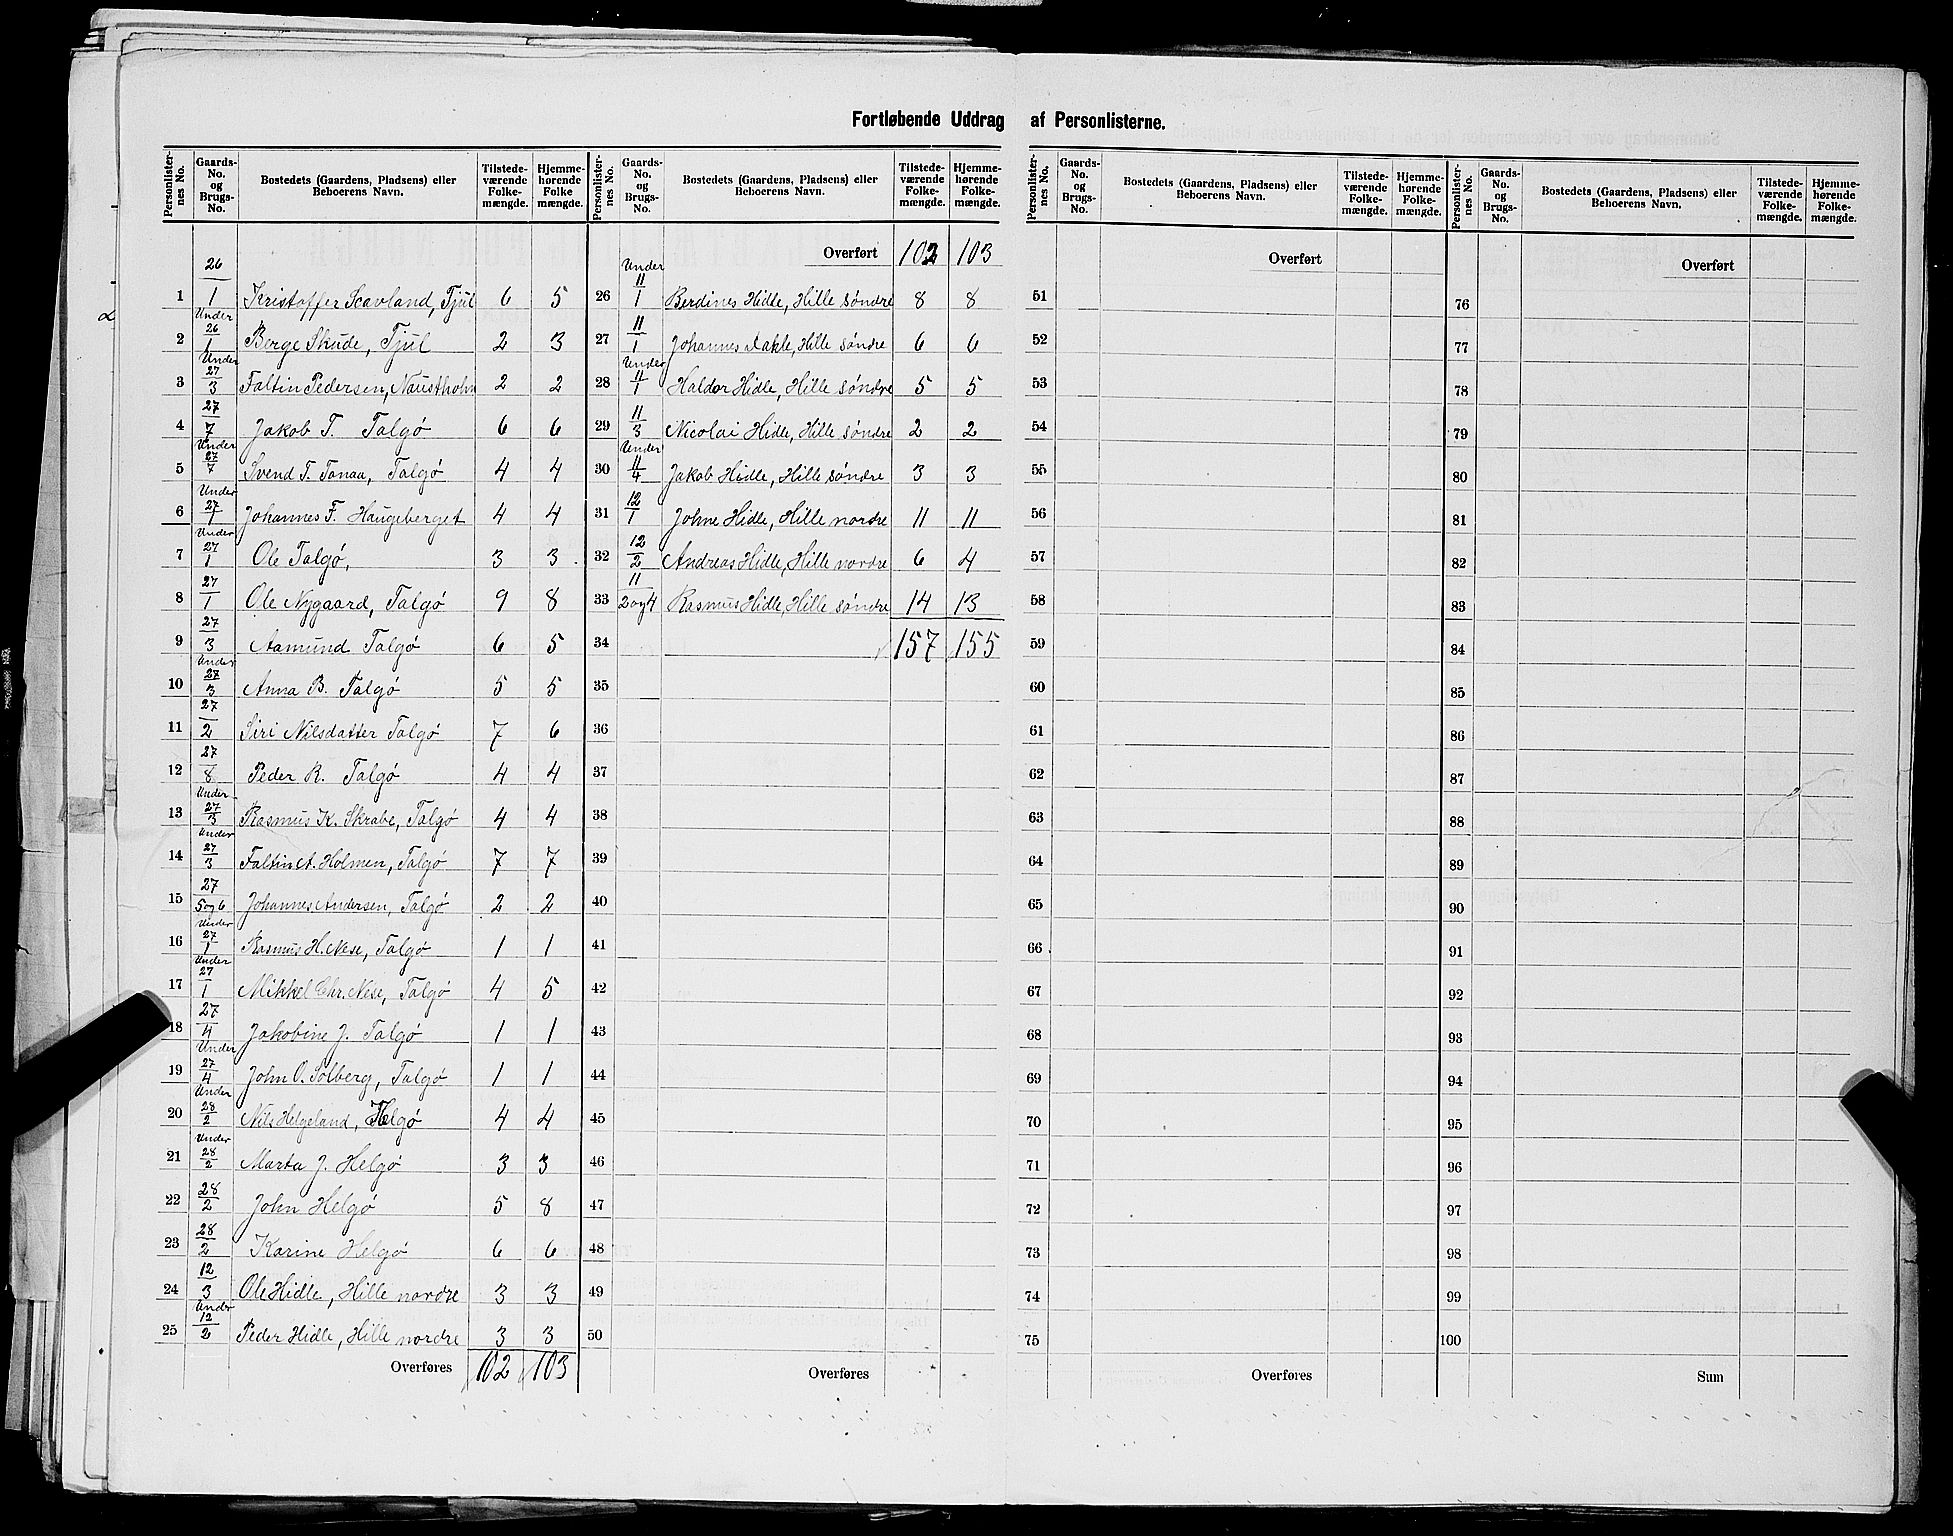 Fortløbende Uddrag af Personlisterne.
Personlister-nes No. | Gaards-No. og Brugs-No. | Bostedets (Gaardens, Pladsens) eller Beboerens Navn. | Tilstede-værende Folke-mængde. | Hjemme-hørende Folke mængde.
1 | 26/1 | Kristoffer Scavland, Tjul | 6 | 5
2 | Under 26/1 | Berge Skude, Tjul | 2 | 3
3 | Under 27/3 | Faltin Pedersen, Naustholm | 2 | 2
4 | 27/7 | Jakob T. Talgø | 6 | 6
5 | Under 27/7 | Svend T. Tanaa, Talgø | 4 | 4
6 | Under 27/1 | Johannes F. Haugeberget | 4 | 4
7 | Under 27/1 | Ole Talgø, | 3 | 3
8 | 27/1 | Ole Nygaard, Talgø | 9 | 8
9 | 27/3 | Aamund Talgø | 6 | 5
10 | Under 27/3 | Anna B. Talgø | 5 | 5
11 | 27/2 | Siri Nilsdatter Talgø | 7 | 6
12 | 27/8 | Peder R. Talgø | 4 | 4
13 | Under 27/3 | Rasmus K. Skrabe, Talgø | 4 | 4
14 | Under 27/3 | Faltin A. Holmen, Talgø | 7 | 7
15 | 27/5og6 | Johannes Andersen, Talgø | 2 | 2
16 | Under 27/1 | Rasmus H. Nese, Talgø | 1 | 1
17 | Under 27/1 | Mikkel Chr. Nese, Talgø | 4 | 5
18 | 27/4 | Jakobine J. Talgø | 1 | 1
19 | Under 27/4 | John O. Solberg, Talgø | 1 | 1
20 | Under 28/2 | Nils Helgeland, Helgø | 4 | 4
21 | Under 28/2 | Marta J. Helgø | 3 | 3
22 | 28/2 | John Helgø | 5 | 8
23 | 28/2 | Karine Helgø | 6 | 6
24 | 12/3 | Ole Hidle, Hille nordre | 3 | 3
25 | Under 12/2 | Peder Hidle, Hille nordre | 3 | 3
Overføres | 102 | 103
Personlister-nes No. | Gaards-No. og Brugs-No. | Bostedets (Gaardens, Pladsens) eller Beboerens Navn. | Tilstede-værende Folke-mængde. | Hjemme-hørende Folke-mængde.
Overført | 102 | 103
26 | Under 11/1 | Berdines Hidle, Hille søndre | 8 | 8
27 | 11/1 | Johannes Dakle, Hille søndre | 6 | 6
28 | Under 11/1 | Haldor Hidle, Hille søndre | 5 | 5
29 | 11/3 | Nicolai Hidle, Hille søndre | 2 | 2
30 | Under 11/4 | Jakob Hidle, Hille søndre | 3 | 3
31 | 12/1 | Johne Hidle, Hille nordre | 11 | 11
32 | 12/2 | Andreas Hidle, Hille nordre | 6 | 4
33 | 11/2og4 | Rasmus Hidle, Hille søndre | 14 | 13
34 | 157 | 155
35
36
37
38
39
40
41
42
43
44
45
46
47
48
49
50
Overføres
Personlister-nes No. | Gaards-No. og Brugs-No. | Bostedets (Gaardens, Pladsens) eller Beboerens Navn. | Tilstede-værende Folke-mængde. | Hjemme-hørende Folke-mængde.
Overført
51
52
53
54
55
56
57
58
59
60
61
62
63
64
65
66
67
68
69
70
71
72
73
74
75
Overføres
Personlister-nes No. | Gaards-No. og Brugs-No. | Bostedets (Gaardens, Pladsens) eller Beboerens Navn. | Tilstede-værende Folke-mængde. | Hjemme-hørende Folke-mængde.
Overført
76
77
78
79
80
81
82
83
84
85
86
87
88
89
90
91
92
93
94
95
96
97
98
99
100
Sum